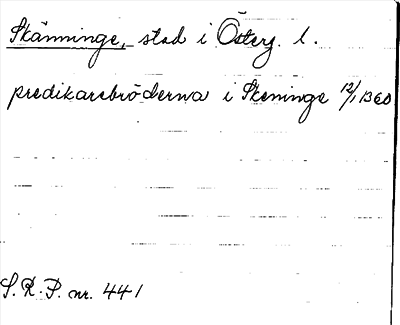 Skänninge, stad i Österg. l.
predikarebröderna i Skeninge 12/1 1360
S. R. P. nr. 441